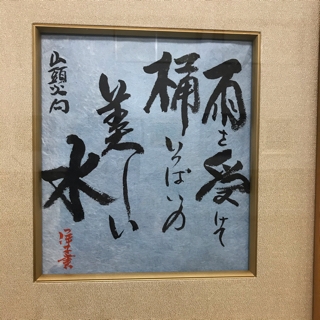 雨を受けて
桶いっぱいの
美しい
水
山頭火句